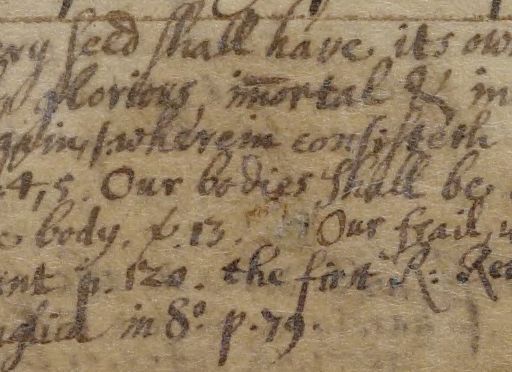 ery seed shall have its ow
glorious, im̄ortal & in
gain, wherein consisteth
4, 5. Our bodies shall be
body. p. 13. Our frail,
ent p. 120. the first R: Re
in 8.° p. 79.